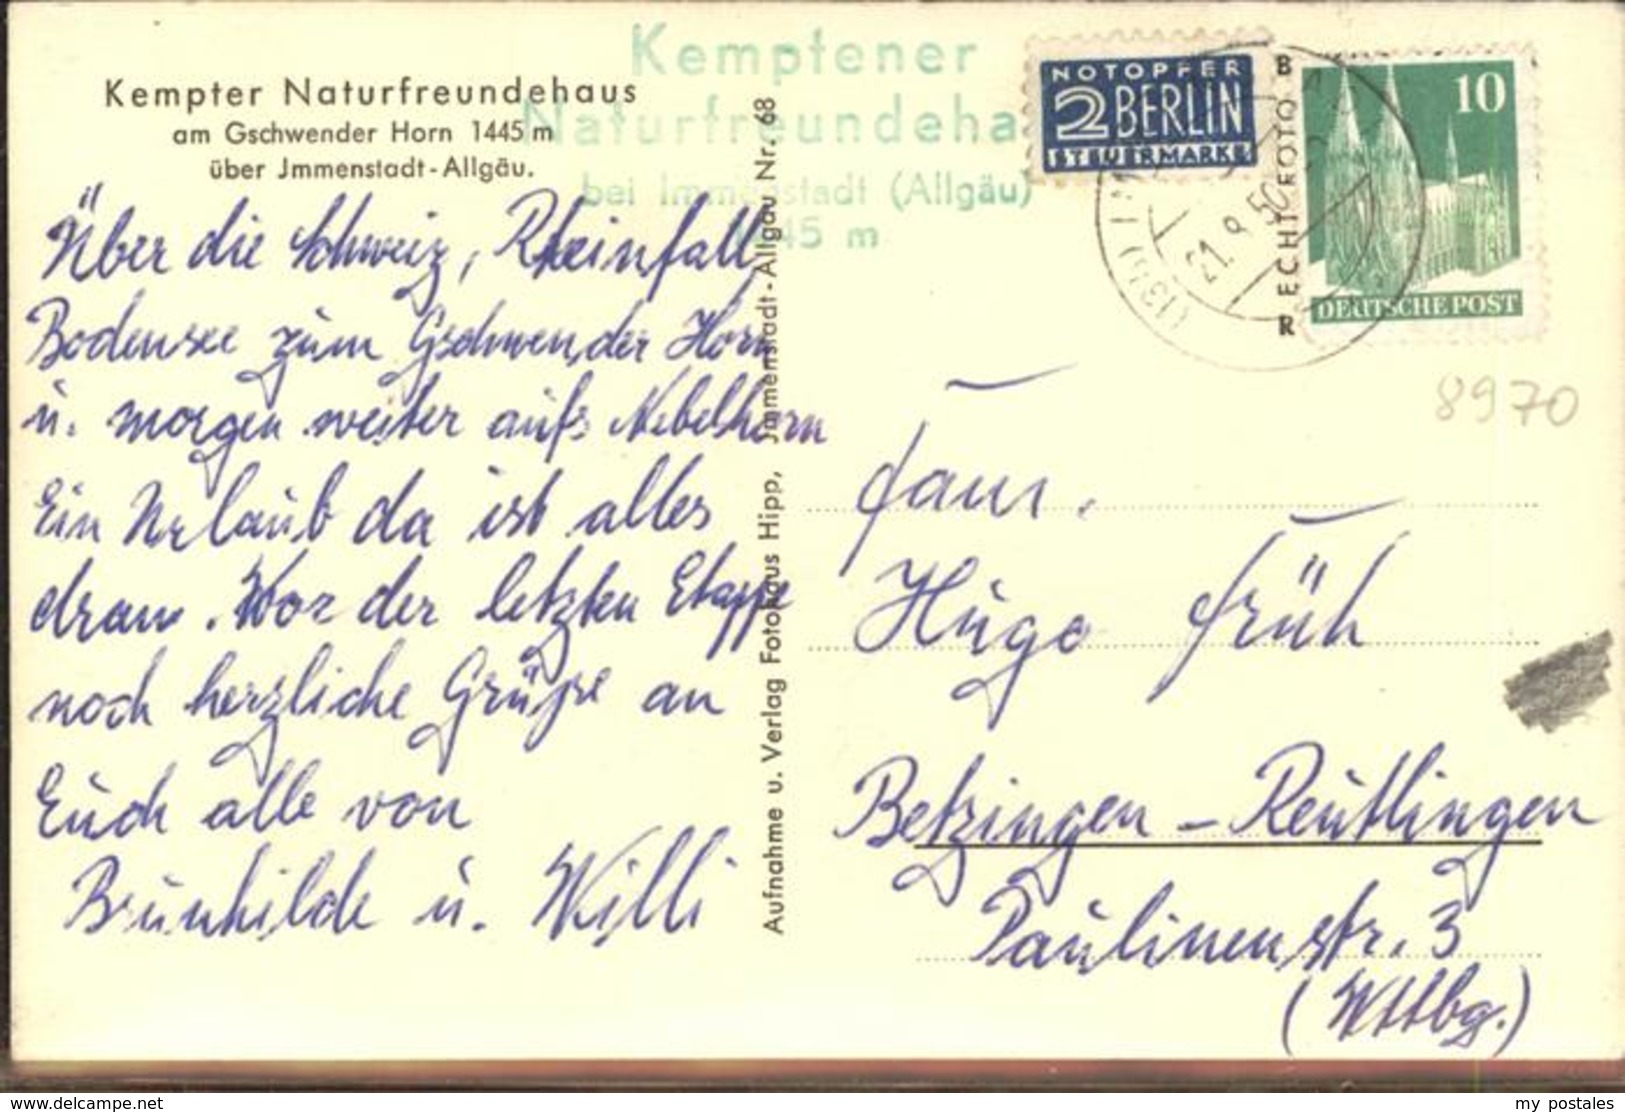 Kempter Naturfreundehaus
am Gschwender Horn 1445 m
über Jmmenstadt-Allgäu.
Kemptener
Naturfreundeha
bei Immenstadt (Allgäu)
1445 m
NOTOPFER
2 BERLIN
STEUERMARKE
10
DEUTSCHE POST
21. 9. 50
8970
Über die Schweiz, Rheinfall,
Bodensee zum Gschwender Horn
u. morgen weiter aufs Nebelhorn
Ein Urlaub da ist alles
dran. Vor der letzten Etappe
noch herzliche Grüße an
Euch alle von
Brunhilde u. Willi
Aufnahme u. Verlag Fotohaus Hipp, Jmmenstadt-Allgäu Nr. 68
Fam.
Hugo Früh
Betzingen - Reutlingen
Paulinenstr. 3
(Wttbg.)
www.delcampe.net
my postales